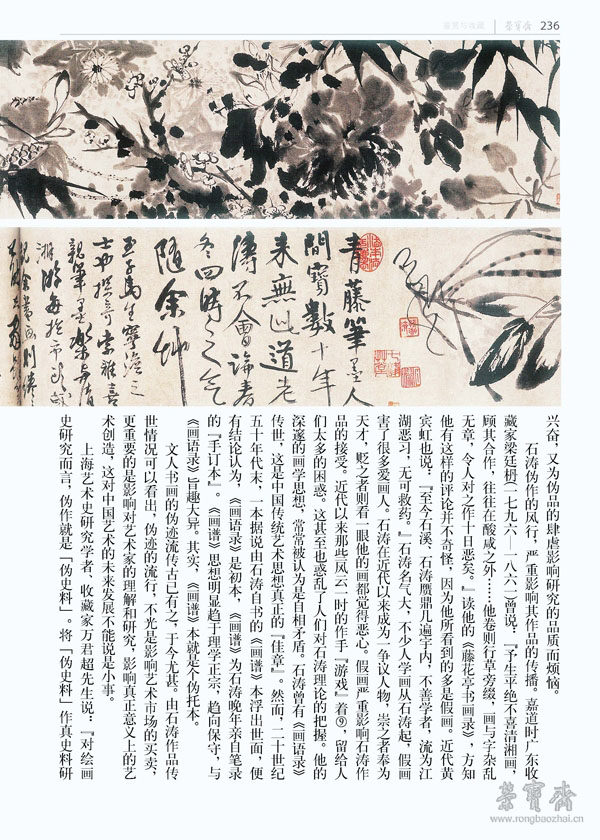 鉴赏与收藏 荣宝斋 236
青藤笔墨人
间宝数十年
来无此道老
涛不会论春
冬四时之气
随余灿
兴奋，又为伪品的肆虐影响研究的品质而烦恼。
石涛伪作的风行，严重影响其作品的传播。嘉道时广东收
藏家梁廷枏（一七九六—一八六一）曾说：『予生平绝不喜清湘画，
顾其合作，往往在酸咸之外……他卷则行草旁缀，画与字杂乱
无章，令人对之作十日恶矣。』读他的《藤花亭书画录》，方知
他有这样的评论并不奇怪，因为他所看到的多是假画。近代黄
宾虹也说，『至今石溪、石涛赝鼎几遍宇内，不善学者，流为江
湖恶习，无可救药。』石涛名气大，不少人学画从石涛起，假画
害了很多爱画人。石涛在近代以来成为一争议人物，崇之者奉为
天才，贬之者则看一眼他的画都觉得恶心。假画严重影响石涛作
品的接受。近代以来那些风云一时的作手『游戏』着⑨，留给人
们太多的困惑。这甚至也惑乱了人们对石涛理论的把握。他的
深邃的画学思想，常常被认为是自相矛盾。石涛曾有《画语录》
传世，这是中国传统艺术思想真正的『佳章』。然而，二十世纪
五十年代末，一本据说由石涛自书的《画谱》本浮出世面，便
有结论认为，《画语录》是初本，《画谱》为石涛晚年亲自笔录
的『手订本』。《画谱》思想明显趋于理学正宗，趋向保守，与
《画语录》旨趣大异。其实，《画谱》本就是个伪托本。
文人书画的伪迹流传古已有之，于今尤甚。由石涛作品传
世情况可以看出，伪迹的流行，不光是影响艺术市场的买卖，
更重要的是影响对艺术家的理解和研究，影响真正意义上的艺
术创造，这对中国艺术的未来发展不能说是小事。
上海艺术史研究学者、收藏家万君超先生说：『对绘画
史研究而言，伪作就是「伪史料」。将「伪史料」作真史料研
荣宝斋
www.rongbaozhai.cn